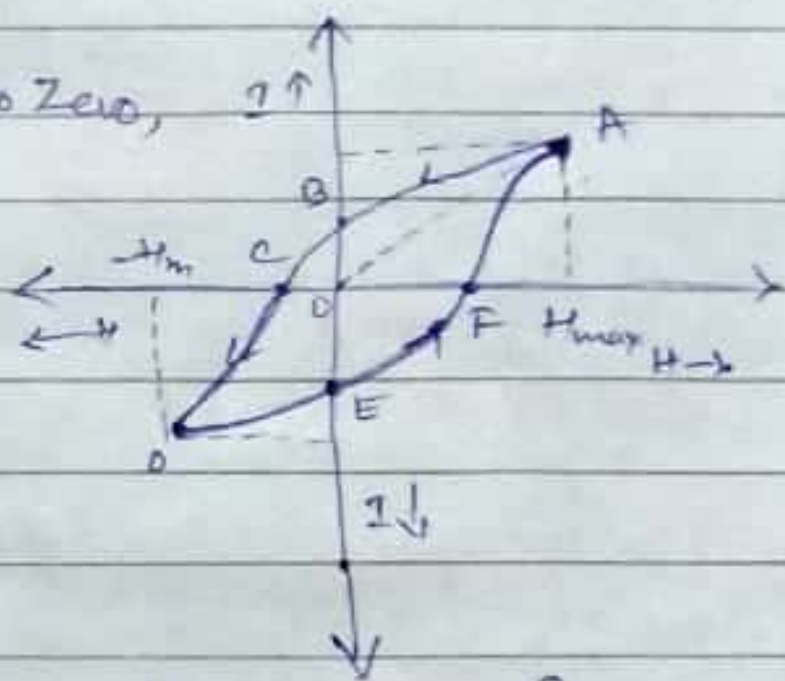 o Zero, I ↑ A
B
-Hm C
O
← H F Hmax H→
E
D
I ↓